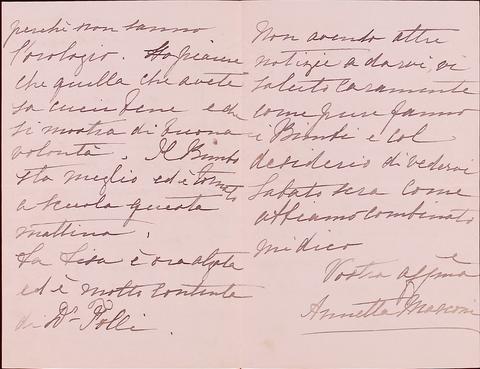 perchè non sanno
l'orologio. Ho piacere
che quella che avete
sa cucir bene e che
si mostra di buona
volontà. Il Bimbo
sta meglio ed è tornato
a scuola questa
mattina.
La Lisa è
ed è molto contenta
di Dr Polli.
Non avendo altre
notizie a darvi, vi
saluto caramente
come pure fanno
i Bimbi e col
desiderio di vedervi
Sabato sera come
abbiamo combinato
mi dico
Vostra affma
Annetta Marconi